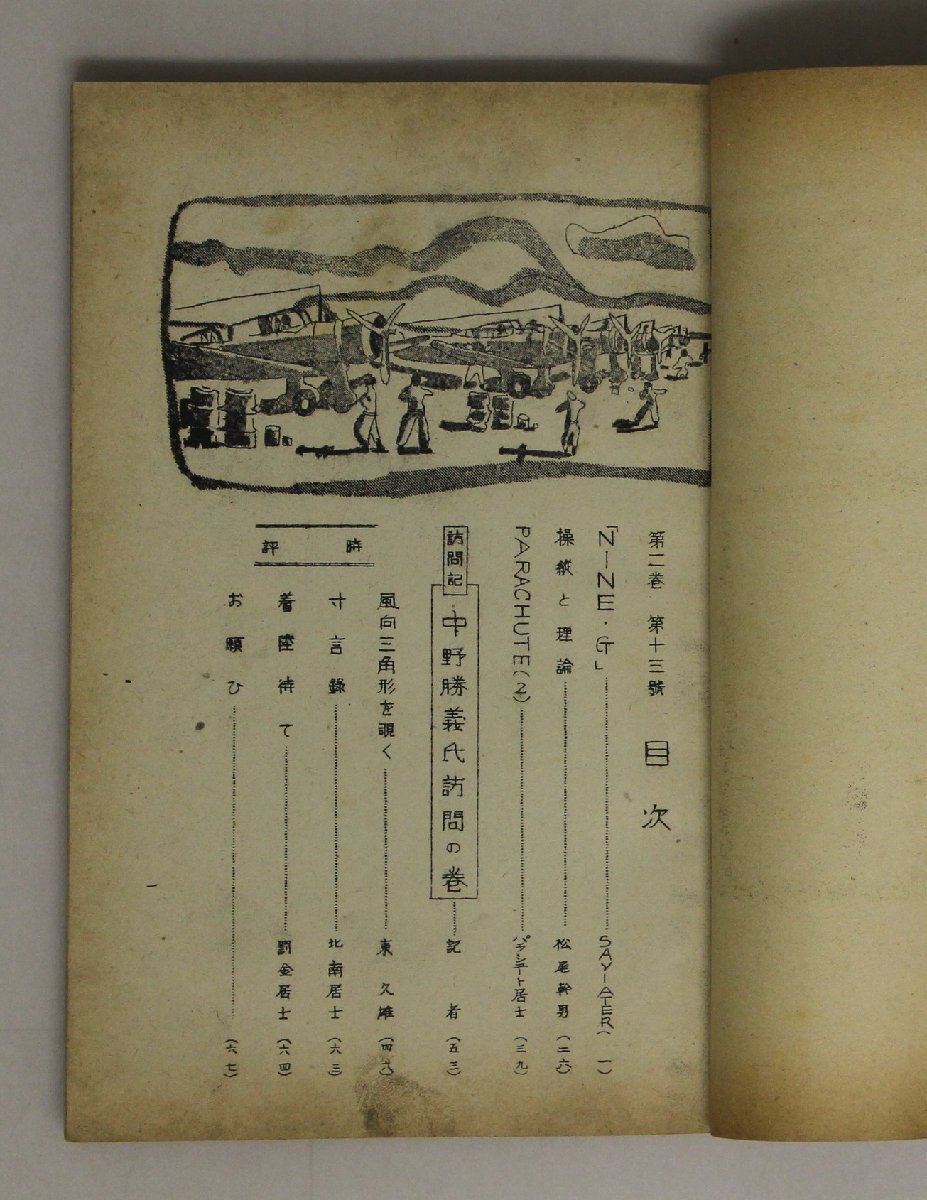 第二巻 第十三號 目次
「NINE・G」 SAYIATER (一)
操縱と理論 松尾幹男 (二六)
PARACHUTE(2) パラシュート居士 (三九)
訪問記 中野勝義氏訪問の巻 記者 (五三)
風向三角形を覗く 東久雄 (四九)
時評
寸言錄 北南居士 (六三)
着座待て 罰金居士 (六四)
お願ひ (六七)